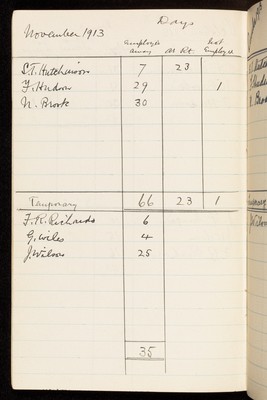 Days
November 1913
employed away At Rt. Not Employed
S.T. Hutchinson 7 23
F. Hudson 29 1
N. Brook 30
66 23 1
Temporary
F.R. Richards 6
G. Wiles 4
J. Wilson 25
35